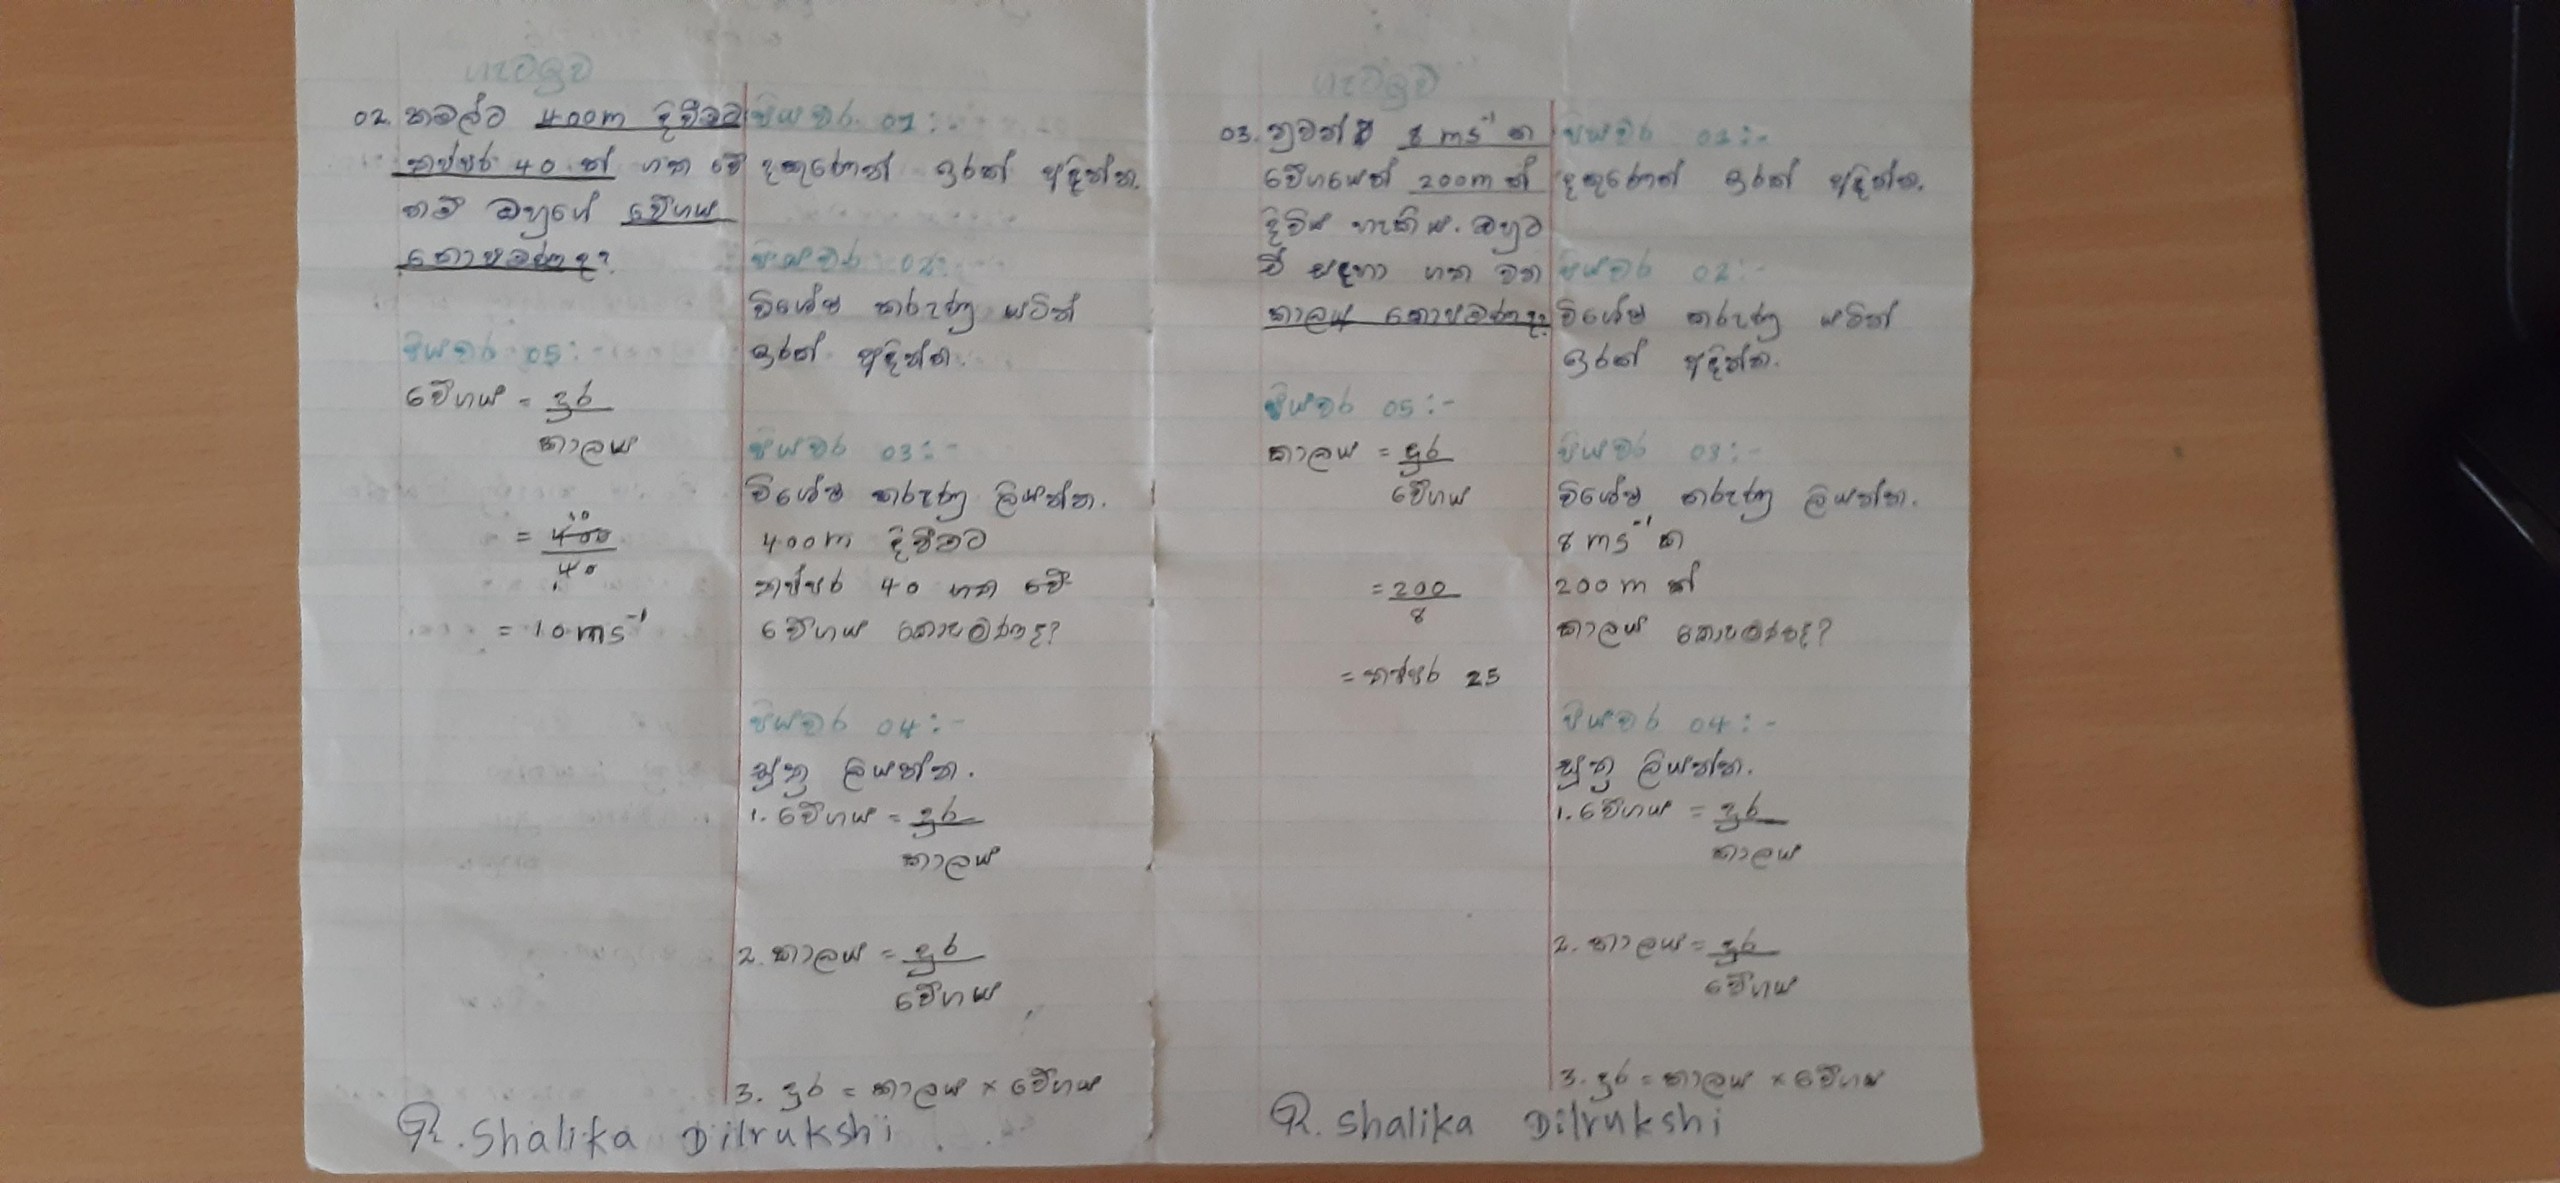 ගැටලුව
02. කමල්ට 400m දිවීමට
තප්පර 40 ක් ගත වේ
නම් ඔහුගේ වේගය
කොපමණද?
පියවර 05:-
වේගය = දුර
කාලය
= 400
40
10
1
= 10 ms⁻¹
පියවර 01:-
දකුණෙන් ඉරක් අඳින්න.
පියවර 02:-
විශේෂ කරුණු යටින්
ඉරක් අඳින්න.
පියවර 03:-
විශේෂ කරුණු ලියන්න.
400m දිවීමට
තප්පර 40 ගත වේ
වේගය කොපමණද?
පියවර 04:-
සූත්‍ර ලියන්න.
1. වේගය = දුර
කාලය
2. කාලය = දුර
වේගය
3. දුර = කාලය × වේගය
R. Shalika Dilrukshi
ගැටලුව
03. නුවන්ට 8 ms⁻¹ ක
වේගයෙන් 200m ක්
දිවිය හැකිය. ඔහුට
ඒ සඳහා ගත වන
කාලය කොපමණද?
පියවර 05:-
කාලය = දුර
වේගය
= 200
8
= තප්පර 25
පියවර 01:-
දකුණෙන් ඉරක් අඳින්න.
පියවර 02:-
විශේෂ කරුණු යටින්
ඉරක් අඳින්න.
පියවර 03:-
විශේෂ කරුණු ලියන්න.
8 ms⁻¹ ක
200 m ක්
කාලය කොපමණද?
පියවර 04:-
සූත්‍ර ලියන්න.
1. වේගය = දුර
කාලය
2. කාලය = දුර
වේගය
3. දුර = කාලය × වේගය
R. Shalika Dilrukshi